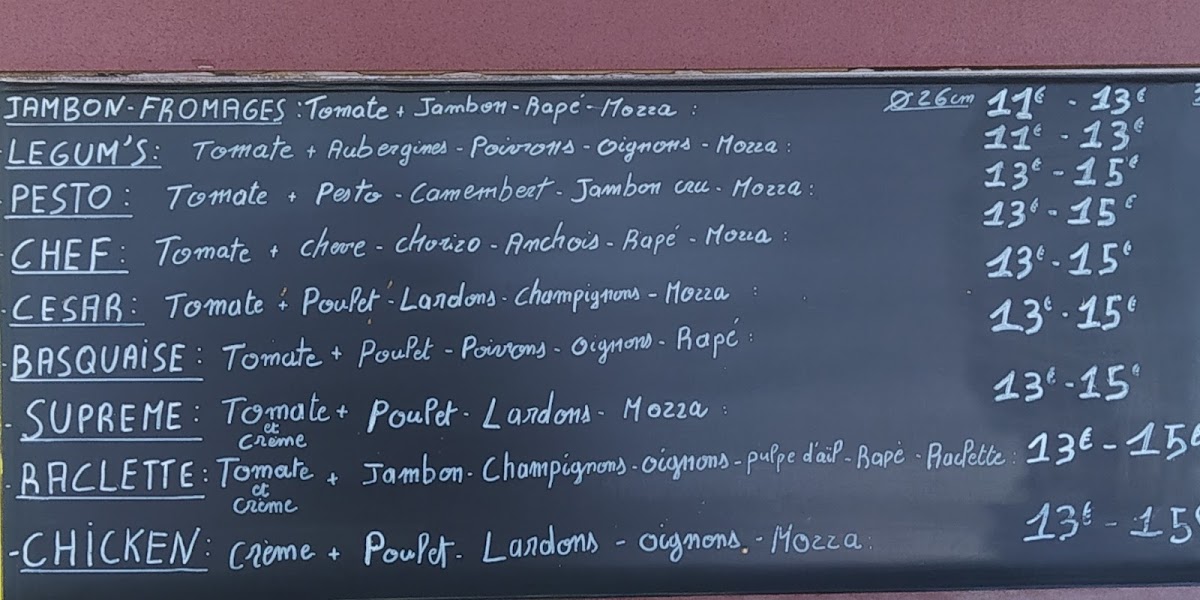 JAMBON-FROMAGES : Tomate + Jambon - Rapé - Mozza : Ø 26cm 11€ - 13€
LEGUM'S : Tomate + Aubergines - Poivrons - oignons - Mozza : 11€ - 13€
PESTO : Tomate + Pesto - Camembert - Jambon cru - Mozza : 13€ - 15€
CHEF : Tomate + chevre - chorizo - Anchois - Rapé - Mozza : 13€ - 15€
CESAR : Tomate + Poulet - Lardons - Champignons - Mozza : 13€ - 15€
BASQUAISE : Tomate + Poulet - Poivrons - oignons - Rapé : 13€ - 15€
- SUPREME : Tomate et crème + Poulet - Lardons - Mozza : 13€ - 15€
- RACLETTE : Tomate et crème + Jambon - Champignons - oignons - pulpe d'ail - Rapé - Raclette : 13€ - 15€
- CHICKEN : crème + Poulet - Lardons - oignons - Mozza : 13€ - 15€